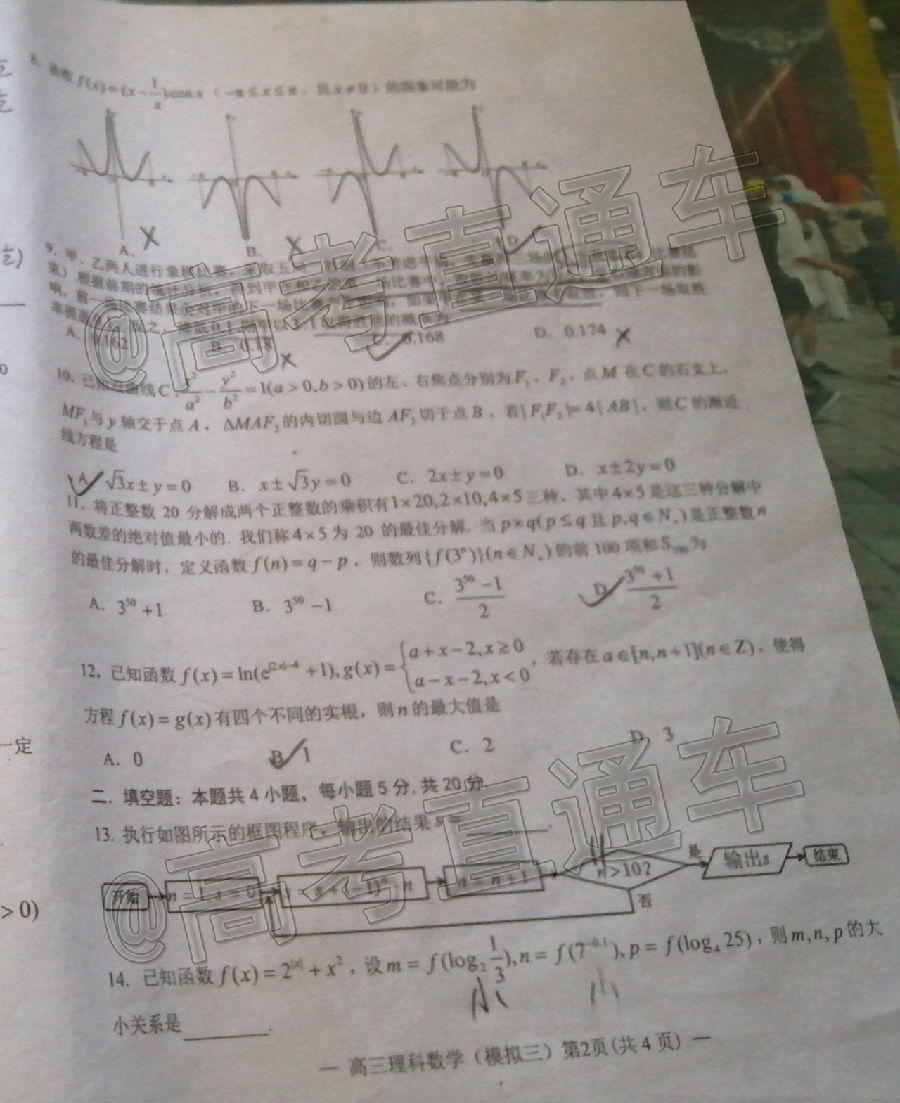 8. 函数 f(x)=(x-1/x)cos x (-π≤x≤π, 且 x≠0) 的图象可能为
A. B. C. D.
9. 甲、乙两人进行象棋比赛, 采取五局
束) 根据前期的
响,
率提高
A. 0.162 B. C. 0.168 D. 0.174
10. 已知双曲线 C: x²/a² - y²/b² =1(a>0,b>0) 的左、右焦点分别为 F₁、F₂, 点 M 在 C 的右支上,
MF₁ 与 y 轴交于点 A, ΔMAF₂ 的内切圆与边 AF₂ 切于点 B, 若|F₁F₂|=4|AB|, 则 C 的渐近
线方程是
A. √3x±y=0 B. x±√3y=0 C. 2x±y=0 D. x±2y=0
11. 将正整数 20 分解成两个正整数的乘积有 1×20,2×10,4×5 三种, 其中 4×5 是这三种分解中
两数差的绝对值最小的. 我们称 4×5 为 20 的最佳分解. 当 p×q(p≤q 且 p,q∈N₊) 是正整数 n
的最佳分解时, 定义函数 f(n)=q-p, 则数列{f(3ⁿ)}(n∈N₊) 的前 100 项和 S₁₀₀ 为
A. 3⁵⁰+1 B. 3⁵⁰-1 C. (3⁵⁰-1)/2 D. (3⁵⁰+1)/2
12. 已知函数 f(x)=ln(e^(|2x|-4)+1), g(x)={a+x-2,x≥0 a-x-2,x<0, 若存在 a∈[n,n+1](n∈Z), 使得
方程 f(x)=g(x) 有四个不同的实根, 则 n 的最大值是
A. 0 B. 1 C. 2 D. 3
二. 填空题: 本题共 4 小题, 每小题 5 分, 共 20 分.
13. 执行如图所示的框图程序, 输出的结果 s=
开始 n=1,s=0 s=s+(-1)ⁿ·n n=n+1 n>102 是 输出 s 结束
否
14. 已知函数 f(x)=2^|x|+x², 设 m=f(log₂ 1/3), n=f(7^(-0.1)), p=f(log₄ 25), 则 m,n,p 的大
小关系是
— 高三理科数学 (模拟三) 第2页(共 4 页) —
一定
>0)
@高考直通车
@高考直通车